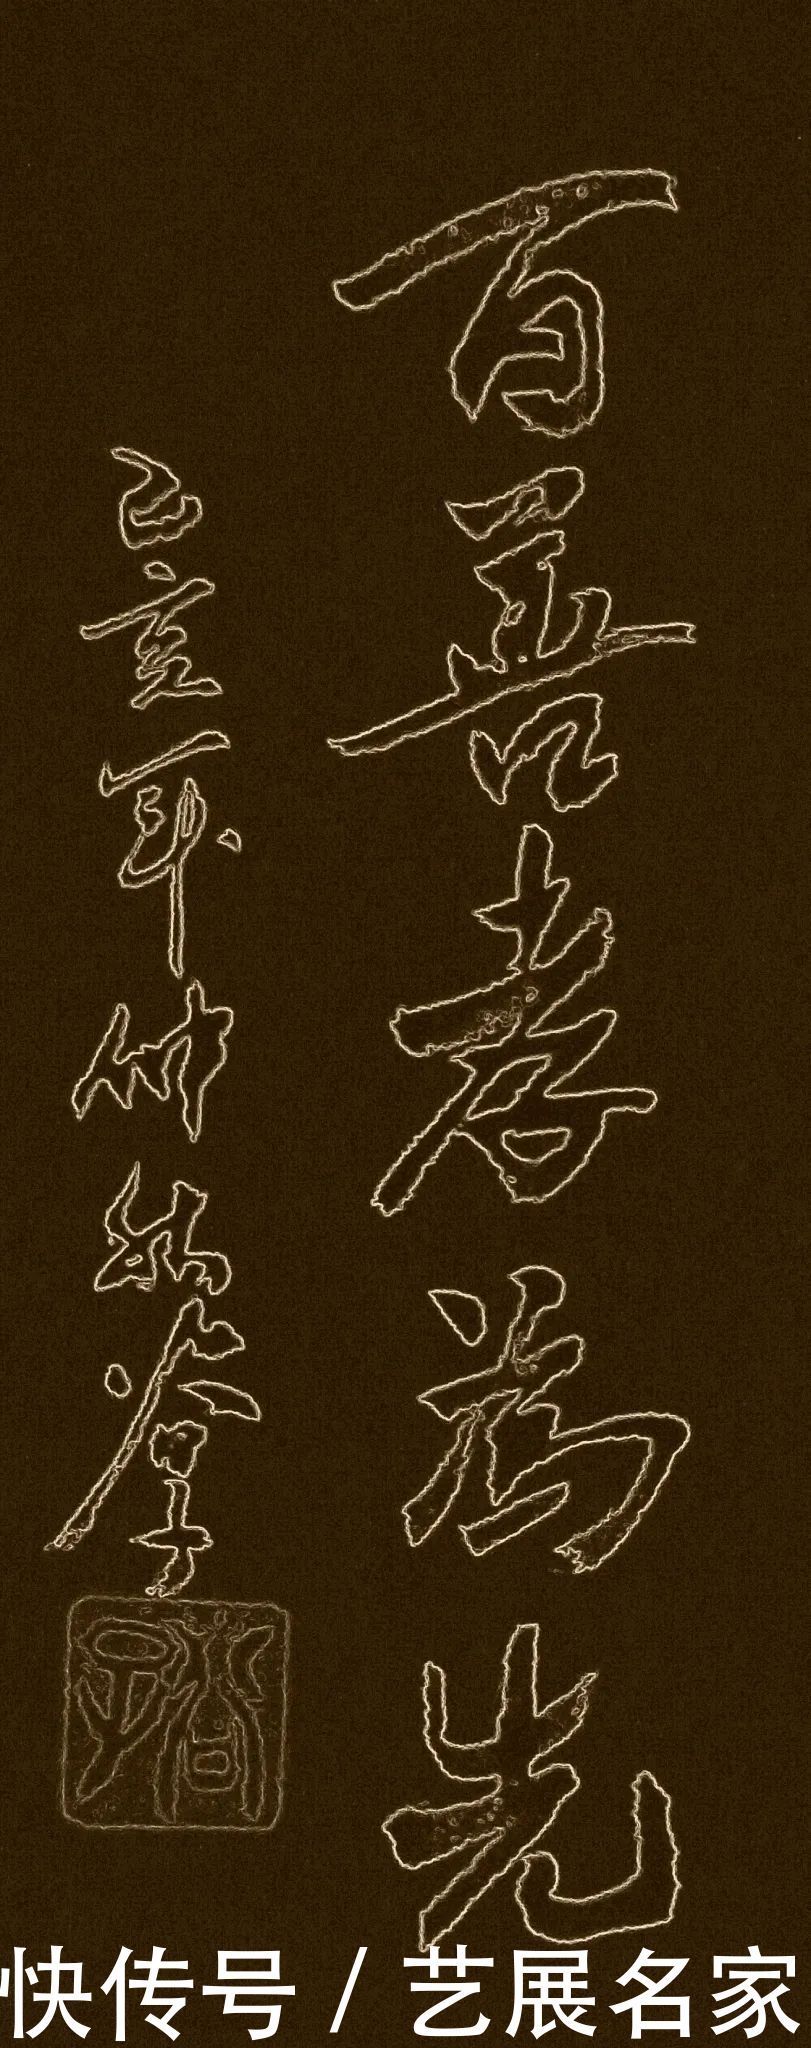 百善孝为先
己亥年仲秋
快传号 / 艺展名家